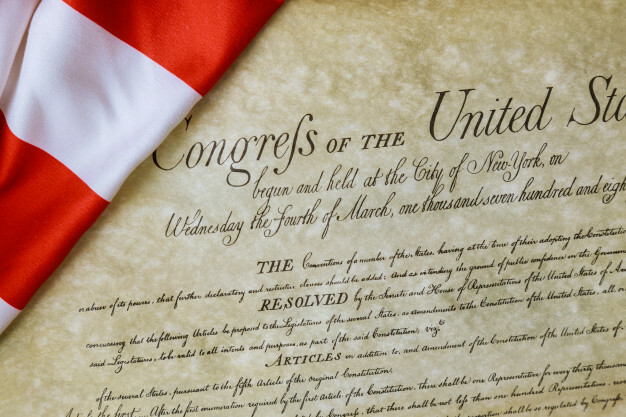 Congreſs OF THE United Sta
begun and held at the City of New-York, on
Wednesday the Fourth of March, one thousand seven hundred and eigh
THE Conventions of a number of the States, having at the time of their adopting the Constitutio
n abuse of its powers, that further declaratory and restrictive clauses should be added: And as extending the ground of public confidence in the Governmen
RESOLVED by the Senate and House of Representatives of the United States of Am
concurring, that the following Articles be proposed to the Legislatures of the several States, as amendments to the Constitution of the United States, all, or
said Legislatures, to be valid to all intents and purposes, as part of the said Constitution, viz.
ARTICLES in addition to, and Amendment of the Constitution of the United States of
of the several States, pursuant to the fifth Article of the original Constitution.
After the first enumeration required by the first Article of the Constitution, there shall be one Representative for every thirty thousand
Congress, that there shall be not less than one hundred Representatives, nor
shall be so regulated by Congress